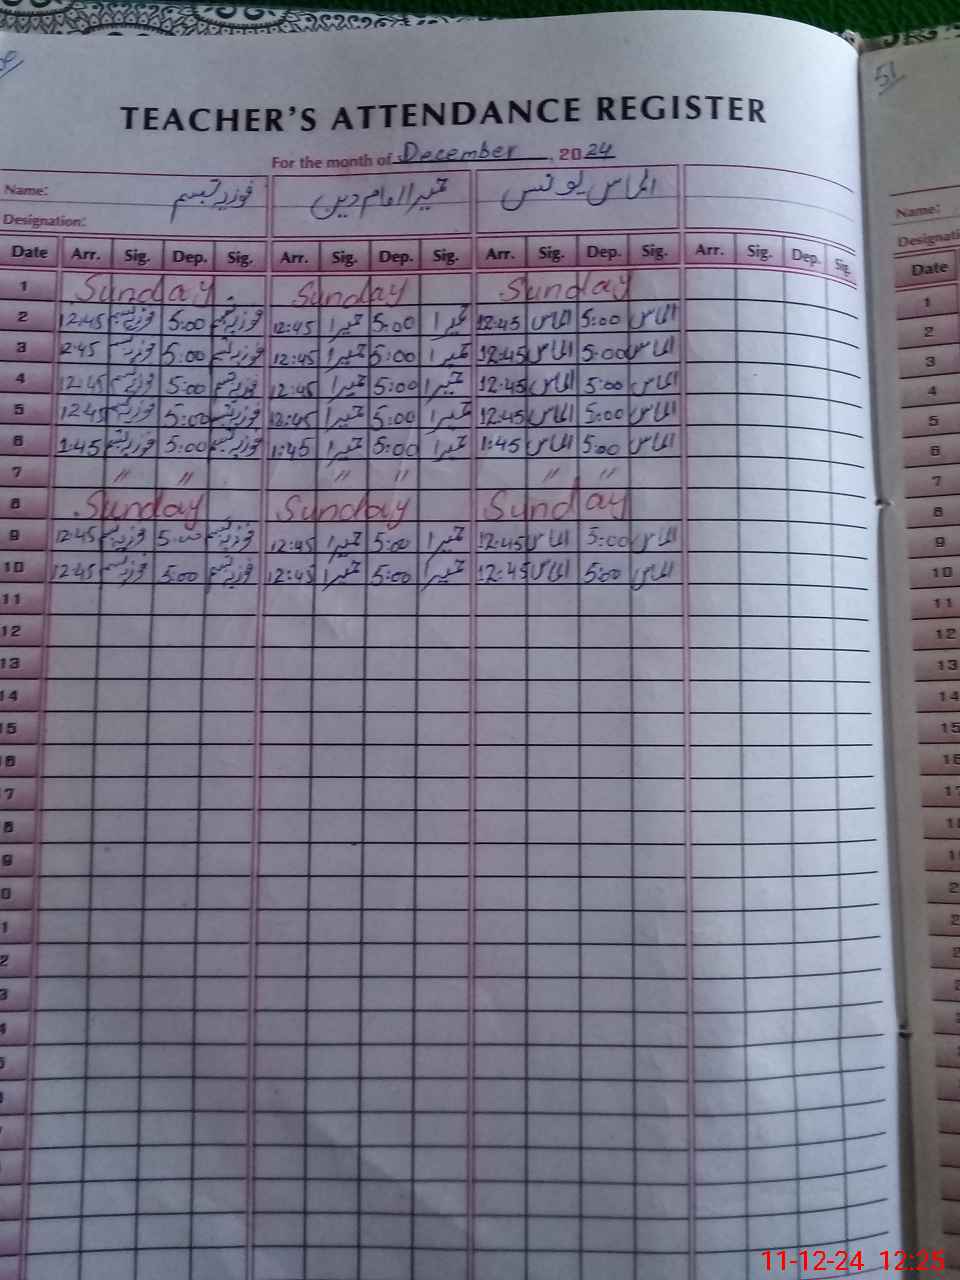 51
TEACHER'S ATTENDANCE REGISTER
For the month of December 2024
Name: فوزیہ تبسم الماس یونس
Designation:
Date Arr. Sig. Dep. Sig. Arr. Sig. Dep. Sig. Arr. Sig. Dep. Sig. Arr. Sig. Dep. Sig.
1 Sunday Sunday Sunday
2 12:45 فوزیہ تبسم 5:00 فوزیہ تبسم 12:45 حمیرا 5:00 حمیرا 12:45 الماس 5:00 الماس
3 2:45 فوزیہ تبسم 5:00 فوزیہ تبسم 12:45 حمیرا 5:00 حمیرا 12:45 الماس 5:00 الماس
4 12:45 فوزیہ تبسم 5:00 فوزیہ تبسم 12:45 حمیرا 5:00 حمیرا 12:45 الماس 5:00 الماس
5 12:45 فوزیہ تبسم 5:00 فوزیہ تبسم 12:45 حمیرا 5:00 حمیرا 12:45 الماس 5:00 الماس
6 1:45 فوزیہ تبسم 5:00 فوزیہ تبسم 1:45 حمیرا 5:00 حمیرا 1:45 الماس 5:00 الماس
7 " " " " " "
8 Sunday Sunday Sunday
9 12:45 فوزیہ تبسم 5:00 فوزیہ تبسم 12:45 حمیرا 5:00 حمیرا 12:45 الماس 5:00 الماس
10 12:45 فوزیہ تبسم 5:00 فوزیہ تبسم 12:45 حمیرا 5:00 حمیرا 12:45 الماس 5:00 الماس
11
12
13
14
15
16
7
8
9
0
1
2
3
4
5
Name:
Date
1
2
3
4
5
6
7
8
9
10
11
12
13
14
15
16
11-12-24 12:25